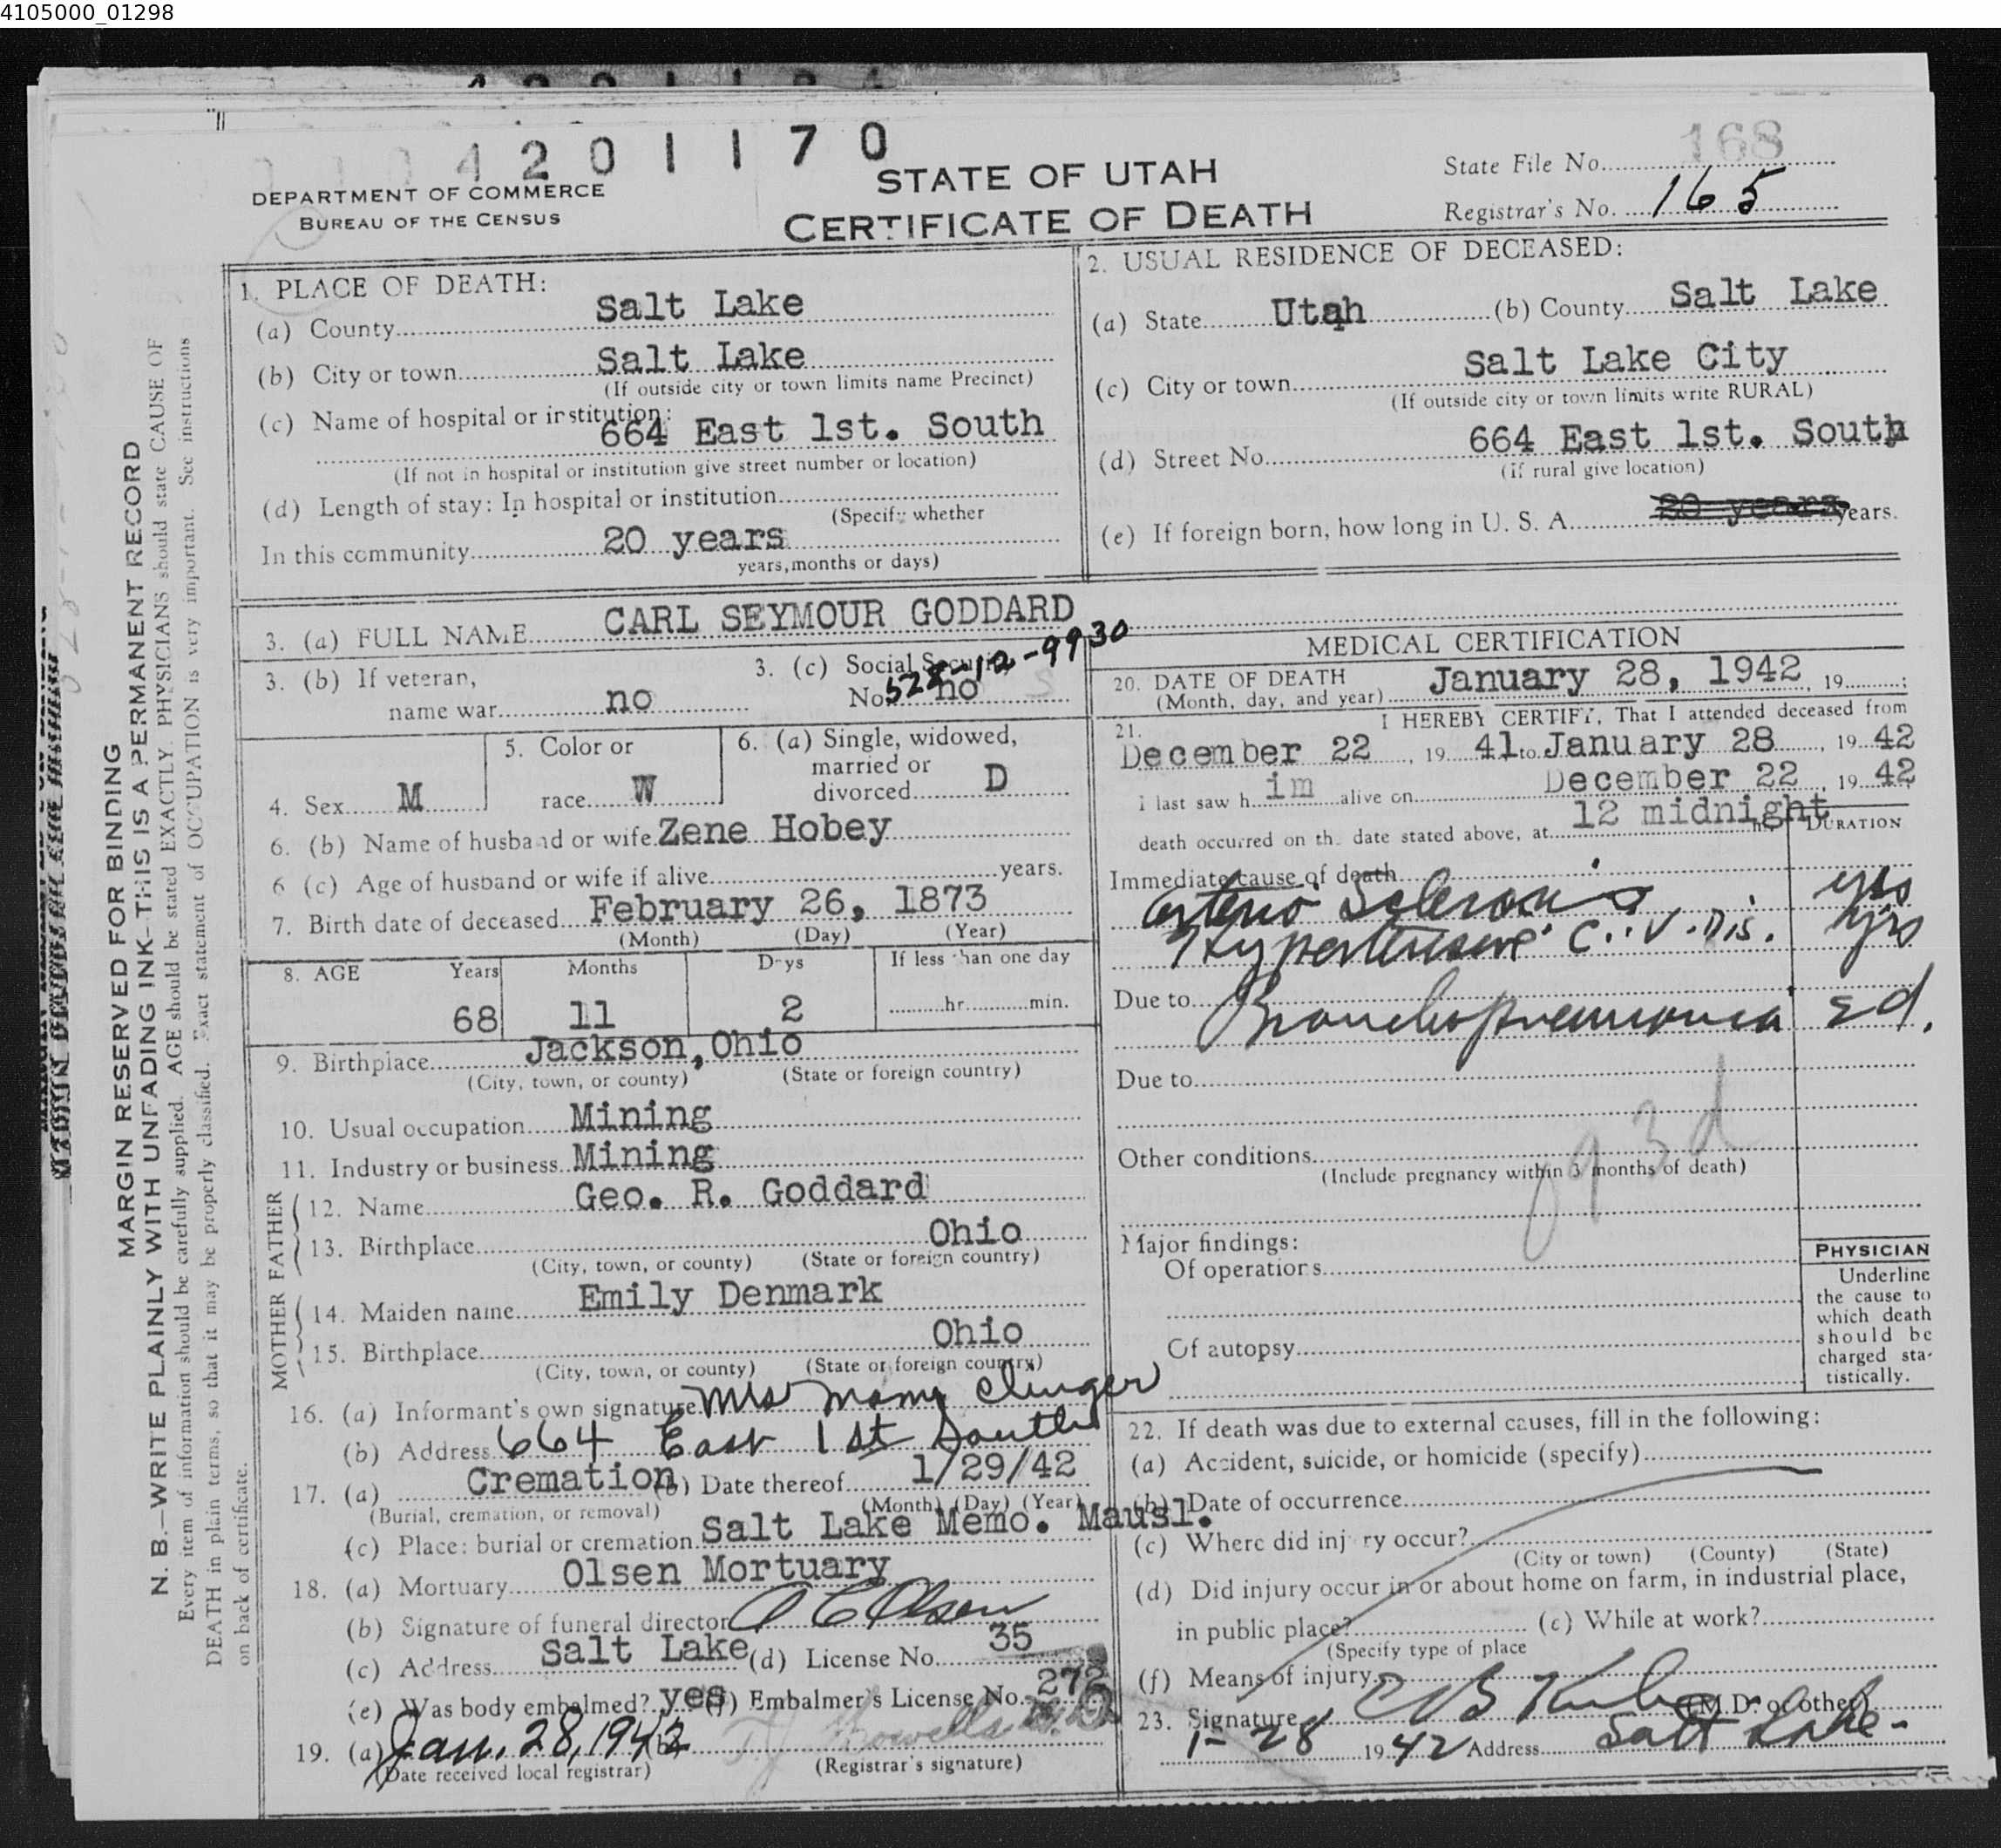 4105000_01298
4201170
168
DEPARTMENT OF COMMERCE
BUREAU OF THE CENSUS
STATE OF UTAH
CERTIFICATE OF DEATH
State File No.
Registrar's No. 165
1. PLACE OF DEATH:
(a) County Salt Lake
(b) City or town Salt Lake
(If outside city or town limits name Precinct)
(c) Name of hospital or institution:
664 East 1st. South
(If not in hospital or institution give street number or location)
(d) Length of stay: In hospital or institution
(Specify whether
In this community 20 years
years, months or days)
2. USUAL RESIDENCE OF DECEASED:
(a) State Utah (b) County Salt Lake
(c) City or town Salt Lake City
(If outside city or town limits write RURAL)
(d) Street No. 664 East 1st. South
(if rural give location)
(e) If foreign born, how long in U. S. A. 20 years years.
3. (a) FULL NAME CARL SEYMOUR GODDARD
3. (b) If veteran,
name war no
3. (c) Social Security
No. 528-12-9930 no
4. Sex M
5. Color or
race W
6. (a) Single, widowed,
married or
divorced D
6. (b) Name of husband or wife Zene Hobey
6 (c) Age of husband or wife if alive years.
7. Birth date of deceased February 26, 1873
(Month) (Day) (Year)
8. AGE Years Months Days If less than one day
68 11 2 hr. min.
9. Birthplace Jackson, Ohio
(City, town, or county) (State or foreign country)
10. Usual occupation Mining
11. Industry or business Mining
FATHER
12. Name Geo. R. Goddard
13. Birthplace Ohio
(City, town, or county) (State or foreign country)
MOTHER
14. Maiden name Emily Denmark
15. Birthplace Ohio
(City, town, or county) (State or foreign country)
16. (a) Informant's own signature Mrs Mamy Clinger
(b) Address 664 East 1st South
17. (a) Cremation (b) Date thereof 1/29/42
(Burial, cremation, or removal) (Month) (Day) (Year)
(c) Place: burial or cremation Salt Lake Memo. Mausl.
18. (a) Mortuary Olsen Mortuary
(b) Signature of funeral director Olsen
(c) Address Salt Lake (d) License No. 35
(e) Was body embalmed? yes (f) Embalmer's License No. 273
19. (a) Jan. 28, 1942 (b)
(Date received local registrar) (Registrar's signature)
MEDICAL CERTIFICATION
20. DATE OF DEATH
(Month, day, and year) January 28, 1942, 19 ;
21. I HEREBY CERTIFY, That I attended deceased from
December 22, 19 41 to January 28, 19 42
I last saw h im alive on December 22, 19 42
death occurred on the date stated above, at 12 midnight
DURATION
Immediate cause of death
Arterio Sclerosis yrs
Hypertensive C.V. Dis. yrs
Due to Bronchopneumonia 2d.
Due to
Other conditions
(Include pregnancy within 3 months of death)
93d
Major findings:
Of operations
Of autopsy
PHYSICIAN
Underline
the cause to
which death
should be
charged sta-
tistically.
22. If death was due to external causes, fill in the following:
(a) Accident, suicide, or homicide (specify)
(b) Date of occurrence
(c) Where did injury occur?
(City or town) (County) (State)
(d) Did injury occur in or about home on farm, in industrial place,
in public place? (e) While at work?
(Specify type of place
(f) Means of injury
23. Signature (M.D. or other)
1-28 1942 Address Salt Lake
MARGIN RESERVED FOR BINDING
N. B.—WRITE PLAINLY WITH UNFADING INK—THIS IS A PERMANENT RECORD
Every item of information should be carefully supplied. AGE should be stated EXACTLY. PHYSICIANS should state CAUSE OF
DEATH in plain terms, so that it may be properly classified. Exact statement of OCCUPATION is very important. See instructions
on back of certificate.